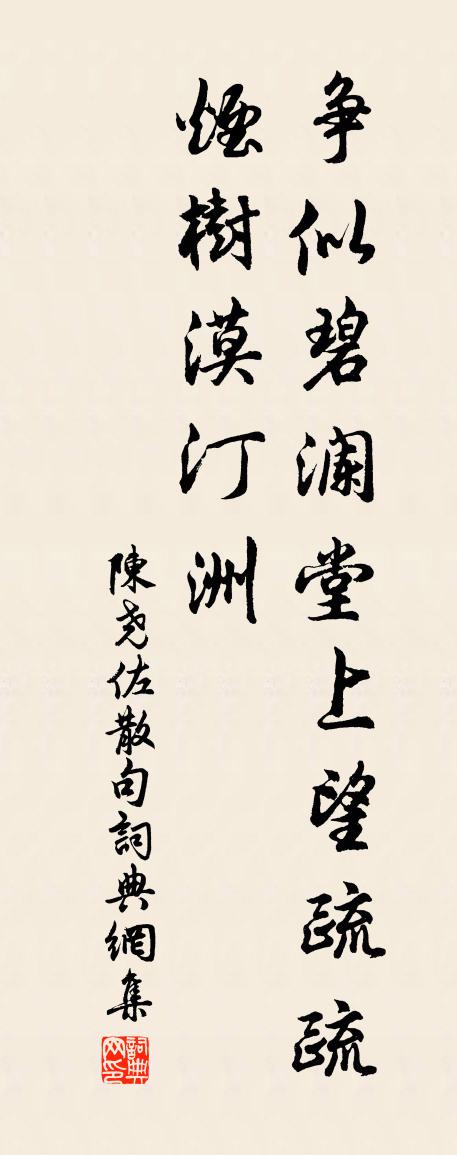 争似碧瀾堂上望疏疏
煙樹漠汀洲
陳堯佐散句詞典網集
詞典网印